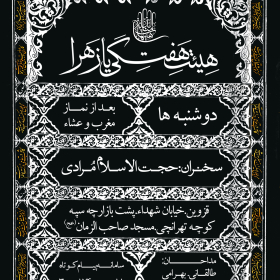 هیئت هفتگی یازهرا
دوشنبه ها
بعد از نماز
مغرب و عشاء
سخنران: حجت الاسلام مُرادی
قزوین،خیابان شهداء،پشت بازارچه سپه
کوچه تهرانچی،مسجد صاحب الزمان (عج)
مداحان:
طالقانی،بهرامی
سامانه پیام کوتاه